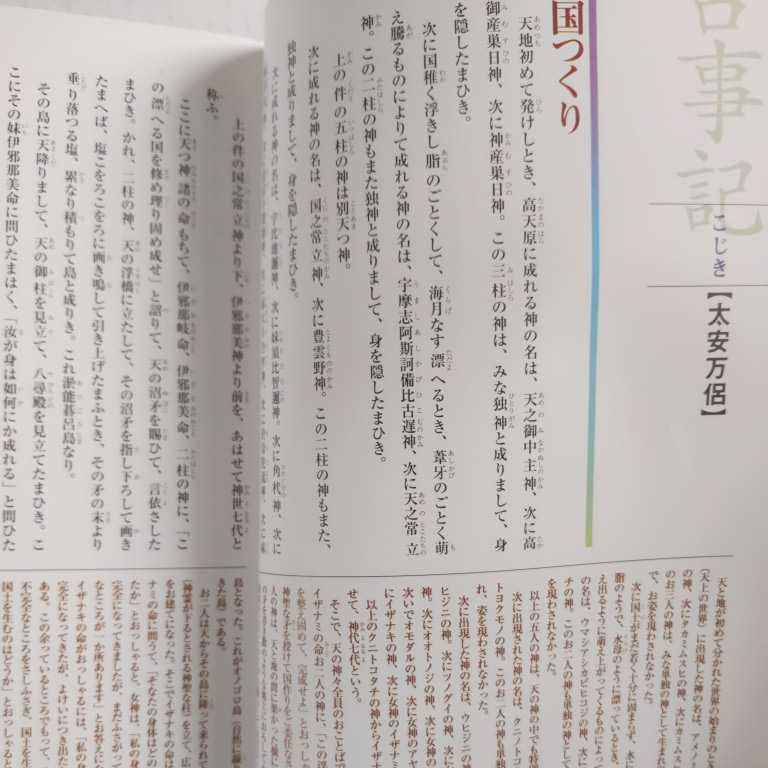 古事記
こじき
【太安万侶】
国つくり
天地初めて発けしとき、高天原に成れる神の名は、天之御中主神、次に高
御産巣日神、次に神産巣日神。この三柱の神は、みな独神と成りまして、身
を隠したまひき。
次に国稚く浮きし脂のごとくして、海月なす漂へるとき、葦牙のごとく萌
え騰るものによりて成れる神の名は、宇摩志阿斯訶備比古遅神、次に天之常立
神。この二柱の神もまた独神と成りまして、身を隠したまひき。
上の件の五柱の神は別天つ神。
次に成れる神の名は、国之常立神、次に豊雲野神。この二柱の神もまた、
独神と成りまして、身を隠したまひき。
次に成れる神の名は、宇比地邇神、次に妹須比智邇神。次に角杙神、次に
上の件の国之常立神より下、伊邪那美神より前を、あはせて神世七代と
称ふ。
ここに天つ神諸の命もちて、伊邪那岐命、伊邪那美命、二柱の神に、「こ
の漂へる国を修め理り固め成せ」と詔りて、天の沼矛を賜ひて、言依さした
まひき。かれ、二柱の神、天の浮橋に立たして、その沼矛を指し下ろして画き
たまへば、塩こをろこをろに画き鳴して引き上げたまふとき、その矛の末より
垂り落つる塩、累なり積もりて島と成りき。これ淤能碁呂島なり。
その島に天降りまして、天の御柱を見立て、八尋殿を見立てたまひき。こ
こにその妹伊邪那美命に問ひたまはく、「汝が身は如何にか成れる」と問ひた
天と地が初めて分かれた世界の始まりのとき
（天上の世界）に出現した神の名は、アメノミ
の神、次にタカミムスヒの神、次にカミムス
のお三人の神は、みな単独の神として生まれ
で、お姿を現わされなかった。
次に国土がまだ若く十分に固まらず、水に
脂のようで、水母のように漂っているとき、
え出るように萌え上がってくるものによって
の名は、ウマシアシカビヒコジの神、次に
チの神。このお二人の神も単独の神として
を現わされなかった。
以上の五人の神は、天の神の中でも特別
次に出現された神の名は、クニノトコ
トヨクモノの神。このお二人の神も単独
れ、姿を現わされなかった。
次に出現した神の名は、ウヒジニの神
ヒジニの神、次にツノグイの神、次に
神、次にオオトノジの神、次に女神の
次いでオモダルの神、次に女神のアヤ
にイザナキの神、次に女神のイザナミ
以上のクニノトコタチの神からイザナ
せて、神代七代という。
そこで、天の神々全員のおことばで
イザナミの命お二人の神に、「この漂
を整え固めて、完成せよ」とおっし
島となった。これがオノゴロ島
きた島）である。
お二人は天からその島に降って来られて
（神霊が下るとされる神聖な柱）を立て、広
をお建てになった。そこでイザナキの命は
ナミの命に問うて、「そなたの身体はどの
たか」とおっしゃると、女神は、「私の身
完全になってきましたが、まだふさがって
なところが一か所あります」とお答えにな
イザナキの命がおっしゃるには、「私の身
完全になってきたが、よけいにつき出た
ある。この余っているところでもって、
不完全なところをさしふさぎ、国土を生
国土を生むのはどうか」とおっしゃると